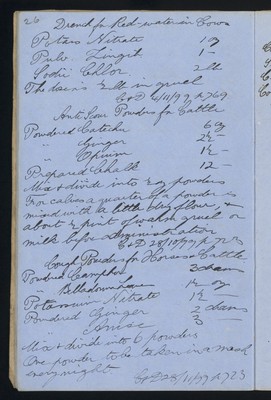 26 Drench for Red-water in Cows
Potass Nitrate 1 oz
Pulv. Zingib 1 -
Sodii Chlor. 2 lb
The dose is ½ lb in gruel
C & D 4/11/99 p 769
Anti Scour Powders for Cattle
Powdered Catechu 6 oz
" Ginger 2½ -
" Opium 1½ -
Prepared Chalk 12 -
Mix & divide into 2 oz powders
For calves a quarter of a powder is
mixed with a little dry flour, &
about ½ pint of warm gruel or
milk before administration
C & D 28/10/99 p 723
Cough Powders for Horses & Cattle
Powdered Camphor 3 drams
" Belladonna 1½ oz
Potassium Nitrate 1½ -
Powdered Ginger 2 drams
" Anise 3 -
Mix & divide into 6 powders
One powder to be taken in a mash
every night
C & D 28/10/99 p 723